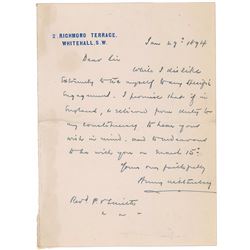 2 RICHMOND TERRACE.
WHITEHALL, S.W.
Jan 29. 1894
Dear Sir
While I dislike
extremely to tie myself to any
engagement. I promise that if in
England, & relieved from duty to
my constituency to bear your
wish in mind. and to endeavour
to be with you on March 15.
Yours very faithfully
Henry M Stanley
Revd P.